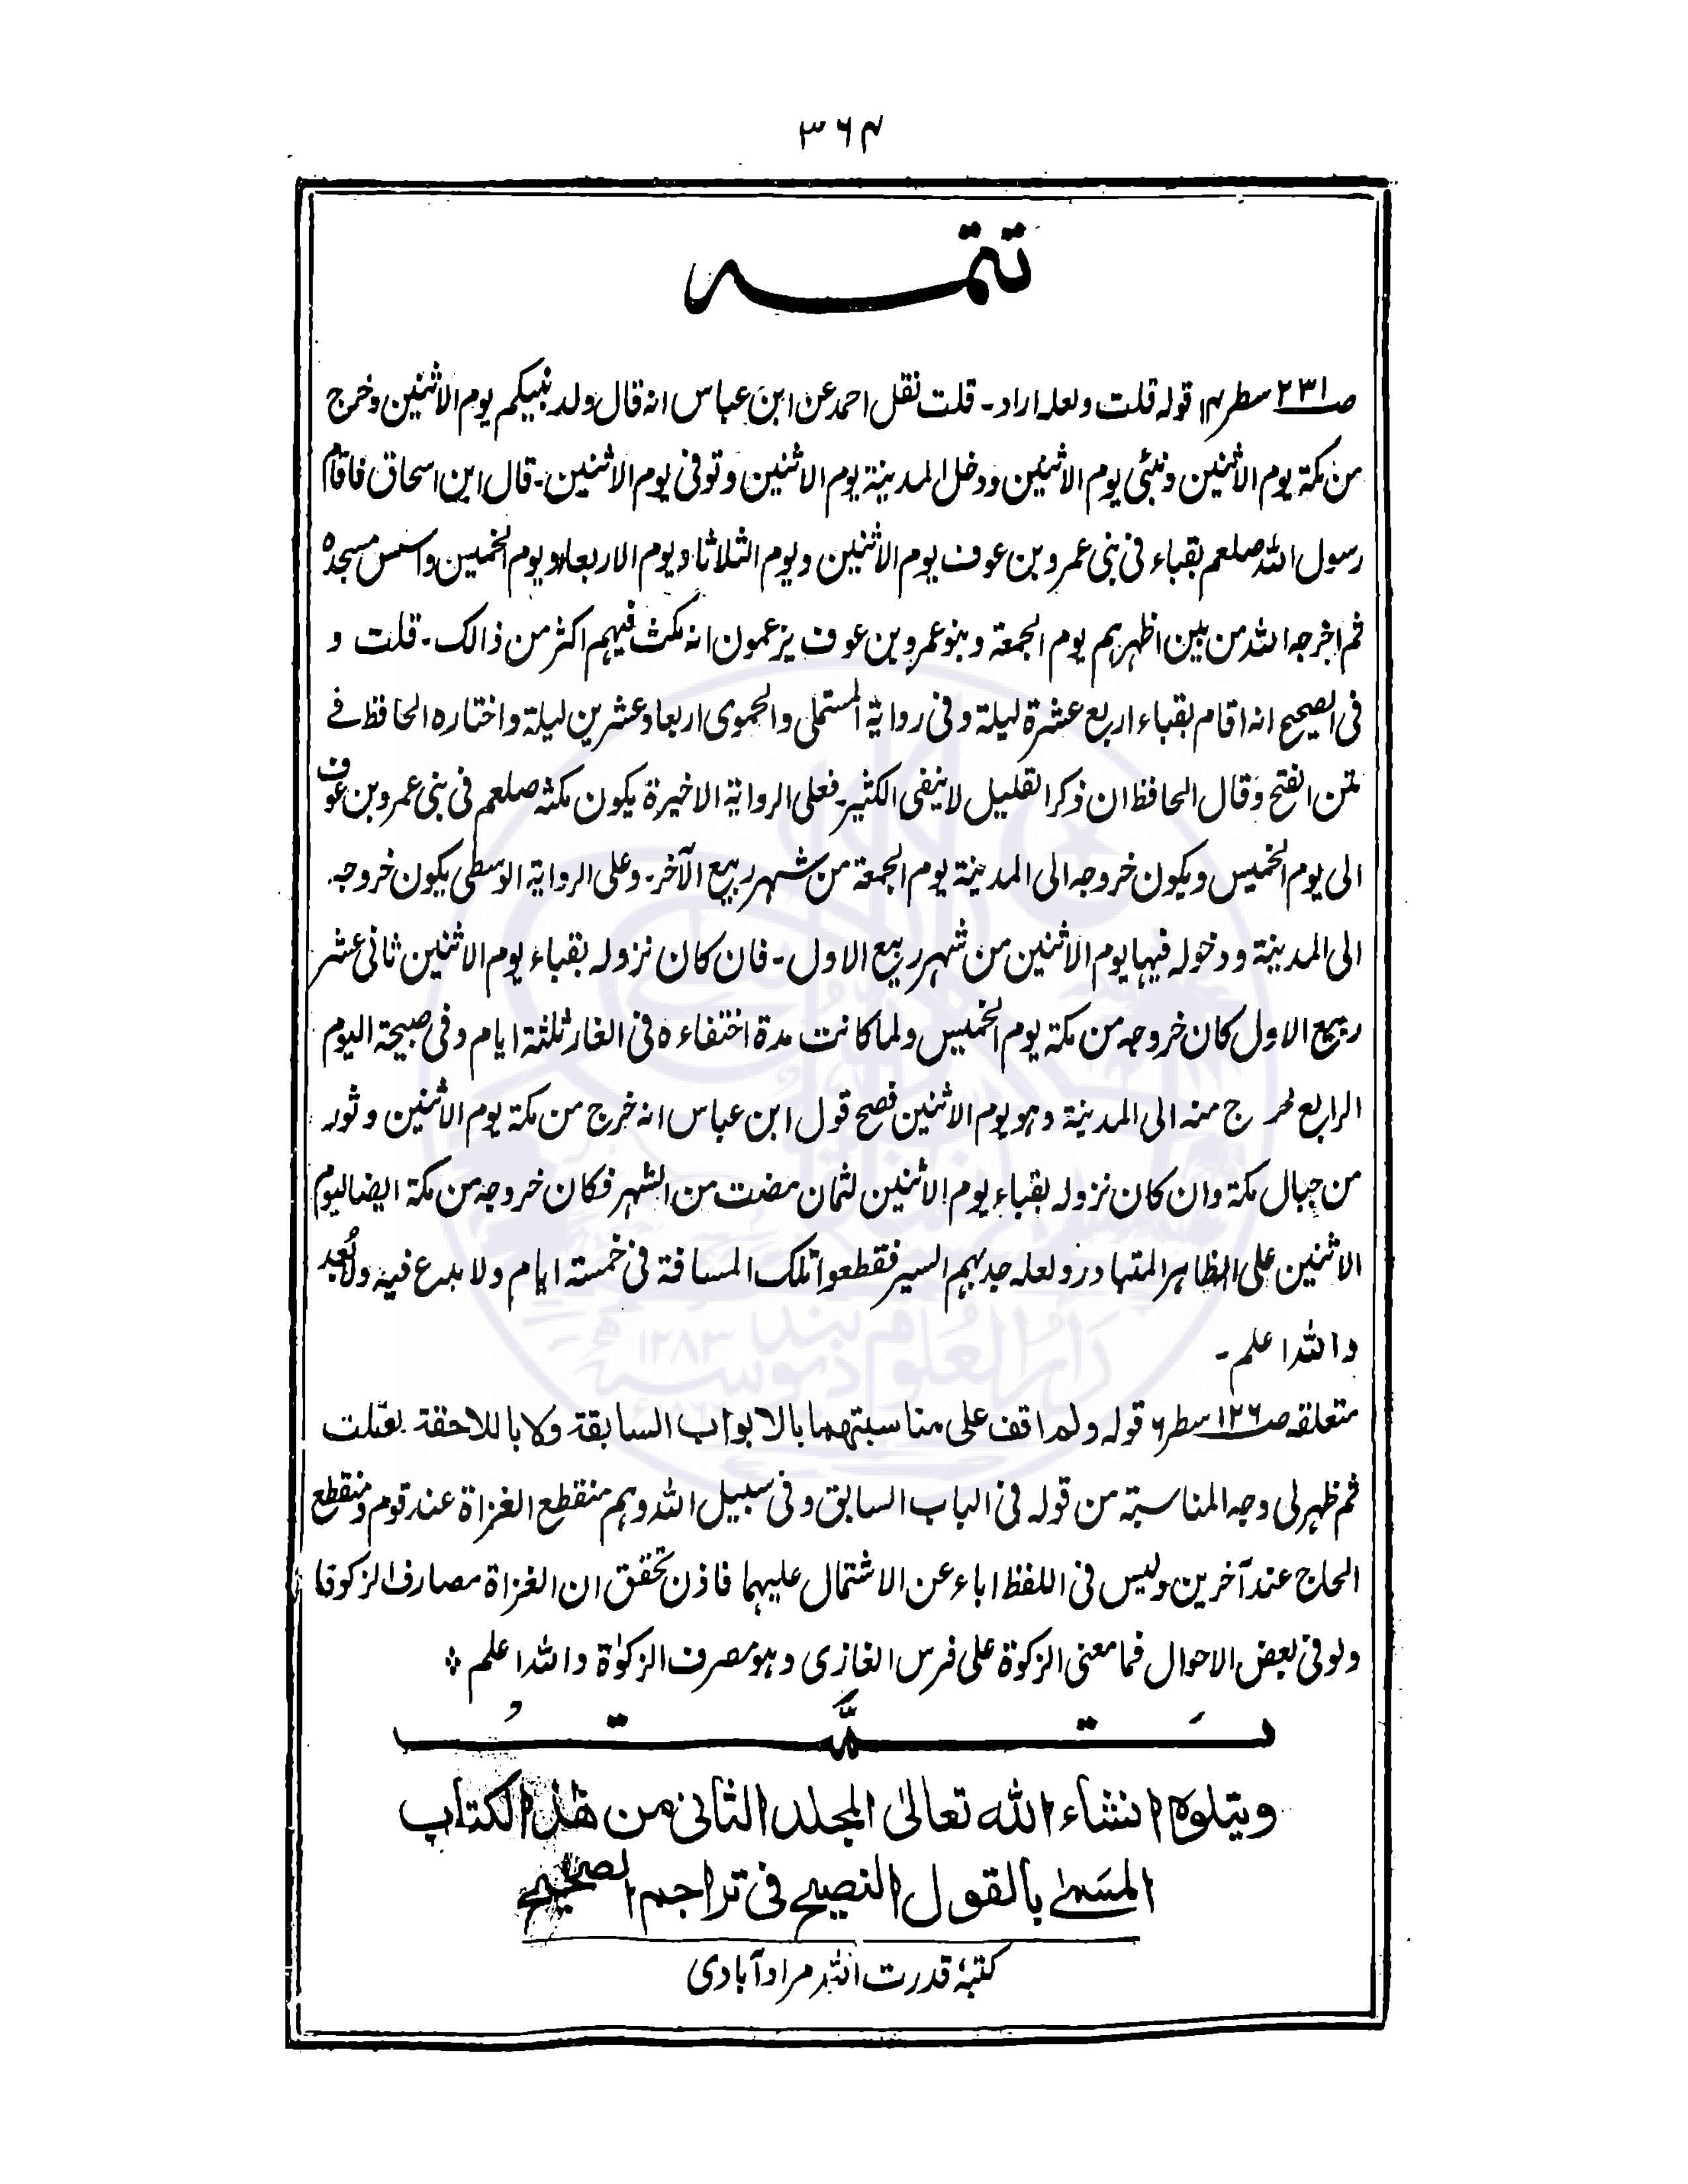 ۳۶۴
تتمہ
صـ۲۳۱ سطر ۱۴ قوله قلت ولعله اراد۔ قلت نقل احمد عن ابن عباس انه قال ولد نبيكم يوم الاثنين وخرج
من مكة يوم الاثنين ونبئ يوم الاثنين ودخل المدينة يوم الاثنين وتوفى يوم الاثنين۔ قال ابن اسحاق فاقام
رسول الله صلعم بقباء فى بنى عمرو بن عوف يوم الاثنين ويوم الثلاثا ويوم الاربعاء ويوم الخميس واسس مسجده
ثم اخرجه الله من بين اظهرهم يوم الجمعة وبنو عمرو بن عوف يزعمون انه مكث فيهم اكثر من ذالك۔ قلت و
فى الصحيح انه اقام بقباء اربع عشرة ليلة وفى رواية المستملى والحموى اربعا وعشرين ليلة واختاره الحافظ فے
متن الفتح وقال الحافظ ان ذكر القليل لا ينفى الكثير۔ فعلى الرواية الاخيرة يكون مكثه صلعم فى بنى عمرو بن عوف
الى يوم الخميس ويكون خروجه الى المدينة يوم الجمعة من شهر ربيع الآخر۔ وعلى الرواية الوسطى يكون خروجه
الى المدينة ودخوله فيها يوم الاثنين من شهر ربيع الاول۔ فان كان نزوله بقباء يوم الاثنين ثانى عشر
ربيع الاول كان خروجه من مكة يوم الخميس ولما كانت مدة اختفاءه فى الغار ثلثة ايام وفى صبيحة اليوم
الرابع خرج منه الى المدينة وهو يوم الاثنين فصح قول ابن عباس انه خرج من مكة يوم الاثنين وثور
من جبال مكة وان كان نزوله بقباء يوم الاثنين لثمان مضت من الشهر فكان خروجه من مكة ايضا ليوم
الاثنين على الظاهر المتبادر ولعله جد بهم السير فقطعوا تلك المسافة فى خمسة ايام ولا بدع فيه ولا بُعد
والله اعلم۔
متعلقه صـ۱۲۶ سطر ۶ قوله ولم اقف على مناسبتهما بالابواب السابقة ولا باللاحقة قلت
ثم ظهر لى وجه المناسبة من قوله فى الباب السابق وفى سبيل الله وهم منقطع الغزاة عند قوم ومنقطع
الحاج عند آخرين وليس فى اللفظ اباء عن الاشتمال عليهما فاذن تحقق ان الغزاة مصارف الزكوة
ولو فى بعض الاحوال فما معنى الزكوة على فرس الغازى وهو مصرف الزكوٰة والله اعلم ؞
تـمّـت
ويتلوه انشاء الله تعالىٰ المجلد الثانى من هٰذا الكتاب
المسمىٰ بالقول النصيح فى تراجم الصحيح
كتبهٔ قدرت اللہ مرادآبادى
دار العلوم ديوبند
۱۲۸۳ھ